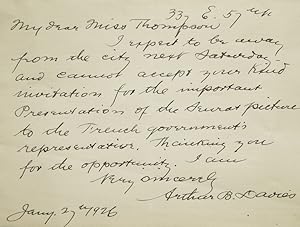 337 E. 57th
My dear Miss Thompson
I expect to be away
from the city next Saturday
and cannot accept your kind
invitation for the important
Presentation of the Seurat picture
to the French government's
representative. Thanking you
for the opportunity. I am
Very sincerely
Arthur B. Davies
Jany. 27th 1926